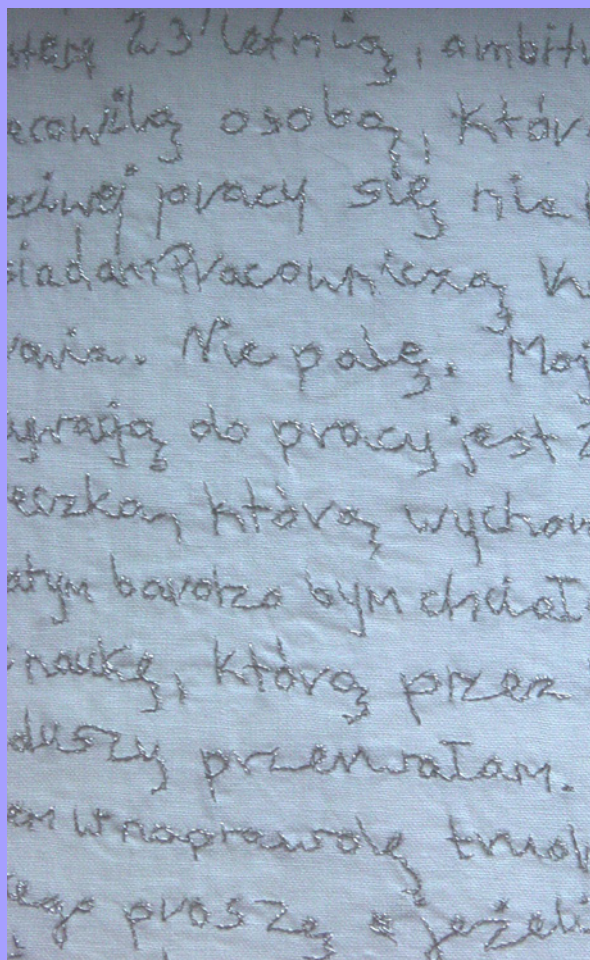 stem 23'letnią, ambitn
acowitą osobą, któr
ciwej pracy się nie b
siadam Pracowniczą k
wania. Nie palę. Moj
ywają do pracy jest ż
eczkam którą wychow
atym bardzo bym chciała
naukę, którą przez
duszy przerwałam.
em w naprawdę trudn
ego proszę o jeżeli